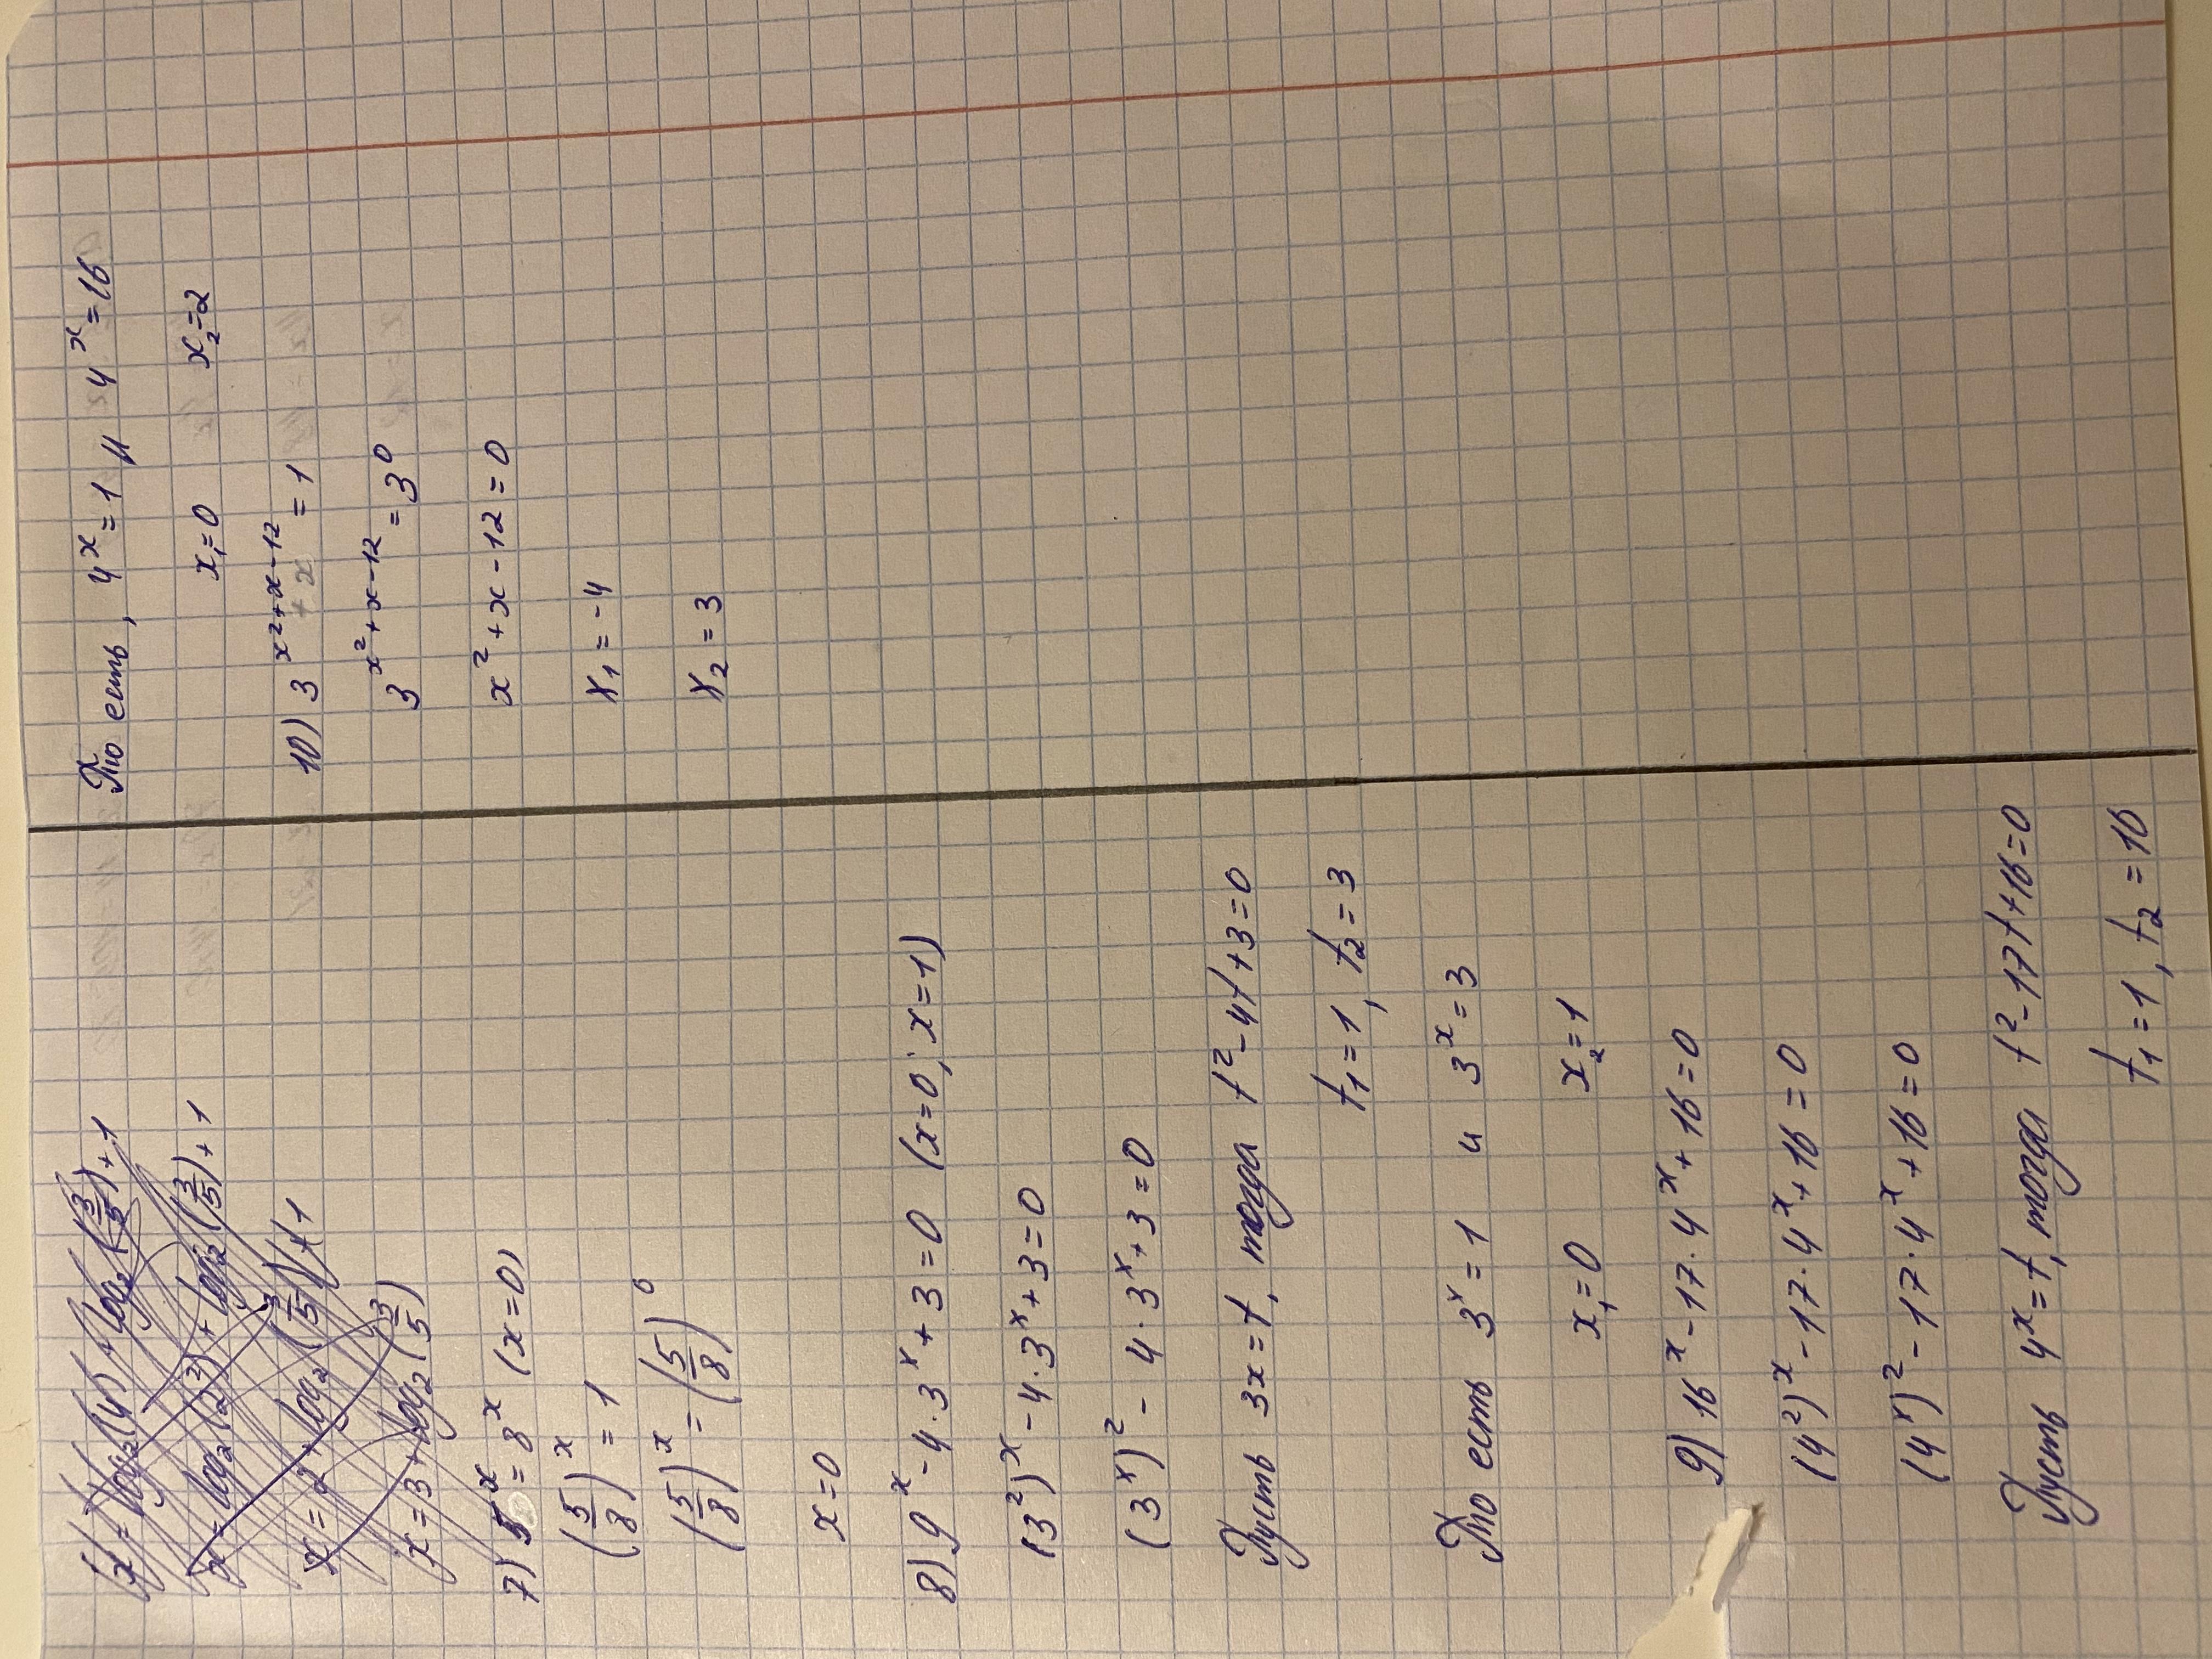 x = log₂(4) + log₂(3/5) + 1
x = log₂(2²) + log₂(3/5) + 1
x = 2 + log₂(3/5) + 1
x = 3 + log₂(3/5)
7) 5ˣ = 8ˣ (x=0)
(5/8)ˣ = 1
(5/8)ˣ = (5/8)⁰
x=0
8) 9ˣ - 4·3ˣ + 3 = 0 (x=0; x=1)
(3²)ˣ - 4·3ˣ + 3 = 0
(3ˣ)² - 4·3ˣ + 3 = 0
Пусть 3x = t, тогда t² - 4t + 3 = 0
t₁ = 1, t₂ = 3
То есть 3ˣ = 1 и 3ˣ = 3
x₁=0 x₂=1
9) 16ˣ - 17·4ˣ + 16 = 0
(4²)ˣ - 17·4ˣ + 16 = 0
(4ˣ)² - 17·4ˣ + 16 = 0
Пусть 4ˣ = t, тогда t² - 17t + 16 = 0
t₁ = 1, t₂ = 16
То есть, 4ˣ = 1 и 4ˣ = 16
x₁=0 x₂=2
10) 3^(x²+x-12) = 1
3^(x²+x-12) = 3⁰
x² + x - 12 = 0
x₁ = -4
x₂ = 3